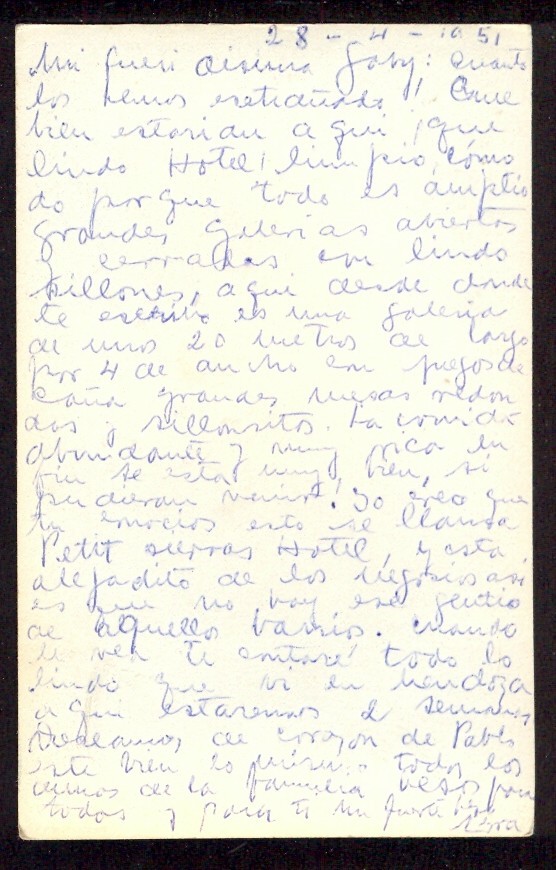 28-4-1951
Mi queridisima Gaby: Cuanto
los hemos extrañado! Que
bien estarian aqui ¡que
lindo Hotel! limpio, cómo
do porque todo es ámplio
grandes galerias abiertas
y cerradas con lindo
sillones, aqui desde donde
te escribo es una galeria
de unos 20 metros de largo
por 4 de ancho con juegos de
caña grandes mesas redon
das y silloncitos. La comida
abundante y muy rica en
fin se esta muy bien, si
pudieran venir! Yo creo que
tu conocias esto se llama
Petit sierras Hotel, y esta
alejadito de los negosios asi
es que no hay ese gentio
de aquellos barrios. cuando
te vea te contaré todo lo
lindo que vi en Mendoza
aqui estaremos 2 semanas
Deseamos de corazon de Pablo
este bien lo mismo todos los
demas de la familia besos para
todos y para ti un fuerte